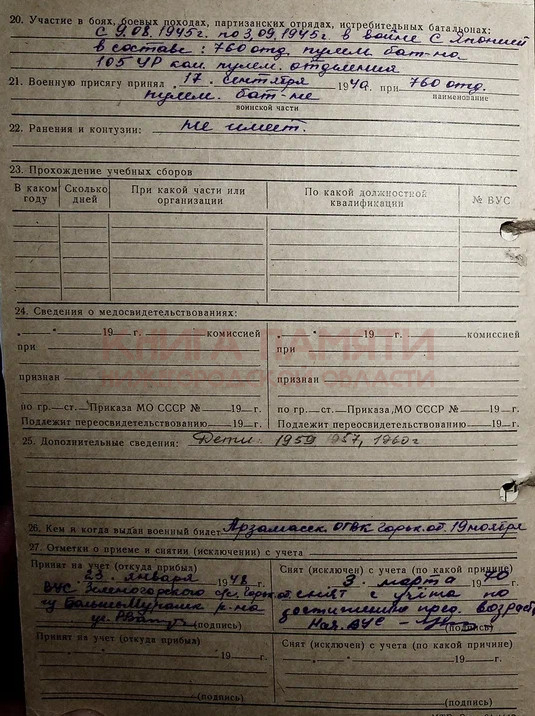 20. Участие в боях, боевых походах, партизанских отрядах, истребительных батальонах:
с 9.08.1945г. по 3.09.1945г. в войне с Японией
в составе: 760 отд. пулем бат-на
105 УР ком. пулем. отделения
21. Военную присягу принял 17. сентября 1940. при 760 отд.
наименование
пулем. бат-не
воинской части
22. Ранения и контузии: не имеет.
23. Прохождение учебных сборов
В каком году Сколько дней При какой части или организации По какой должностной квалификации № ВУС
24. Сведения о медосвидетельствованиях:
„ " 19 г. комиссией
при
признан
по гр. ст. Приказа МО СССР № 19 г.
Подлежит переосвидетельствованию 19 г.
„ " 19 г. комиссией
при
признан
по гр. ст. Приказа МО СССР № 19 г.
Подлежит переосвидетельствованию 19 г.
КНИГА ПАМЯТИ
НИЖЕГОРОДСКОЙ ОБЛАСТИ
25. Дополнительные сведения: Дети 1959 1957, 1960г
26. Кем и когда выдан военный билет Арзамасск. ОГВК горьк. об. 19 ноября
27. Отметки о приеме и снятии (исключении) с учета
Принят на учет (откуда прибыл)
23. января 1948 г.
ВУС
Больше р-на
(подпись)
Снят (исключен) с учета (по какой причине)
3. марта 1970 г.
снят с учёта по
достижению пред. возраст
Нач. ВУС
(подпись)
Принят на учет (откуда прибыл)
„ " 19 г.
(подпись)
Снят (исключен) с учета (по какой причине)
„ " 19 г.
(подпись)